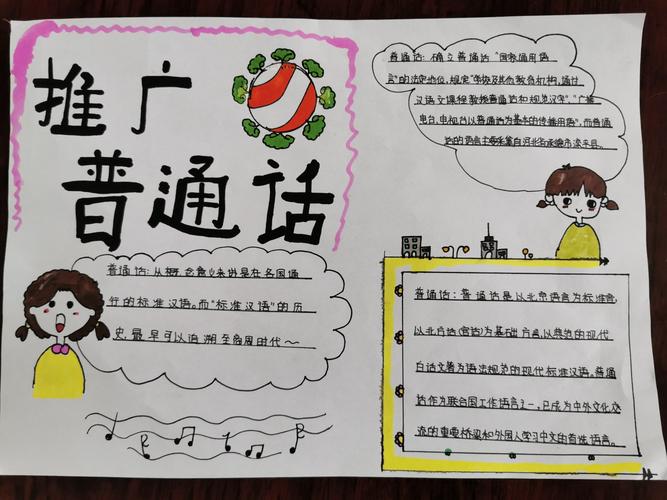 推广
普通话
普通话：从概念意义来讲是在各国通
行的标准汉语。而“标准汉语”的历
史，最早可以追溯至商周时代～
普通话：确立普通话“国家通用语
言”的法定地位，规定“学校及其他教育机构，通过
汉语文课程教授普通话和规范汉字”，“广播
电台、电视台以普通话为基本的传播用语”，而普通
话的语音主要采集自河北省承德市滦平县。
普通话：普通话是以北京语言为标准音，
以北方话（官话）为基础方言，以典范的现代
白话文著为语法规范的现代标准汉语。普通
话作为联合国工作语言之一，已成为中外文化交
流的重要桥梁和外国人学习中文的首选语言。